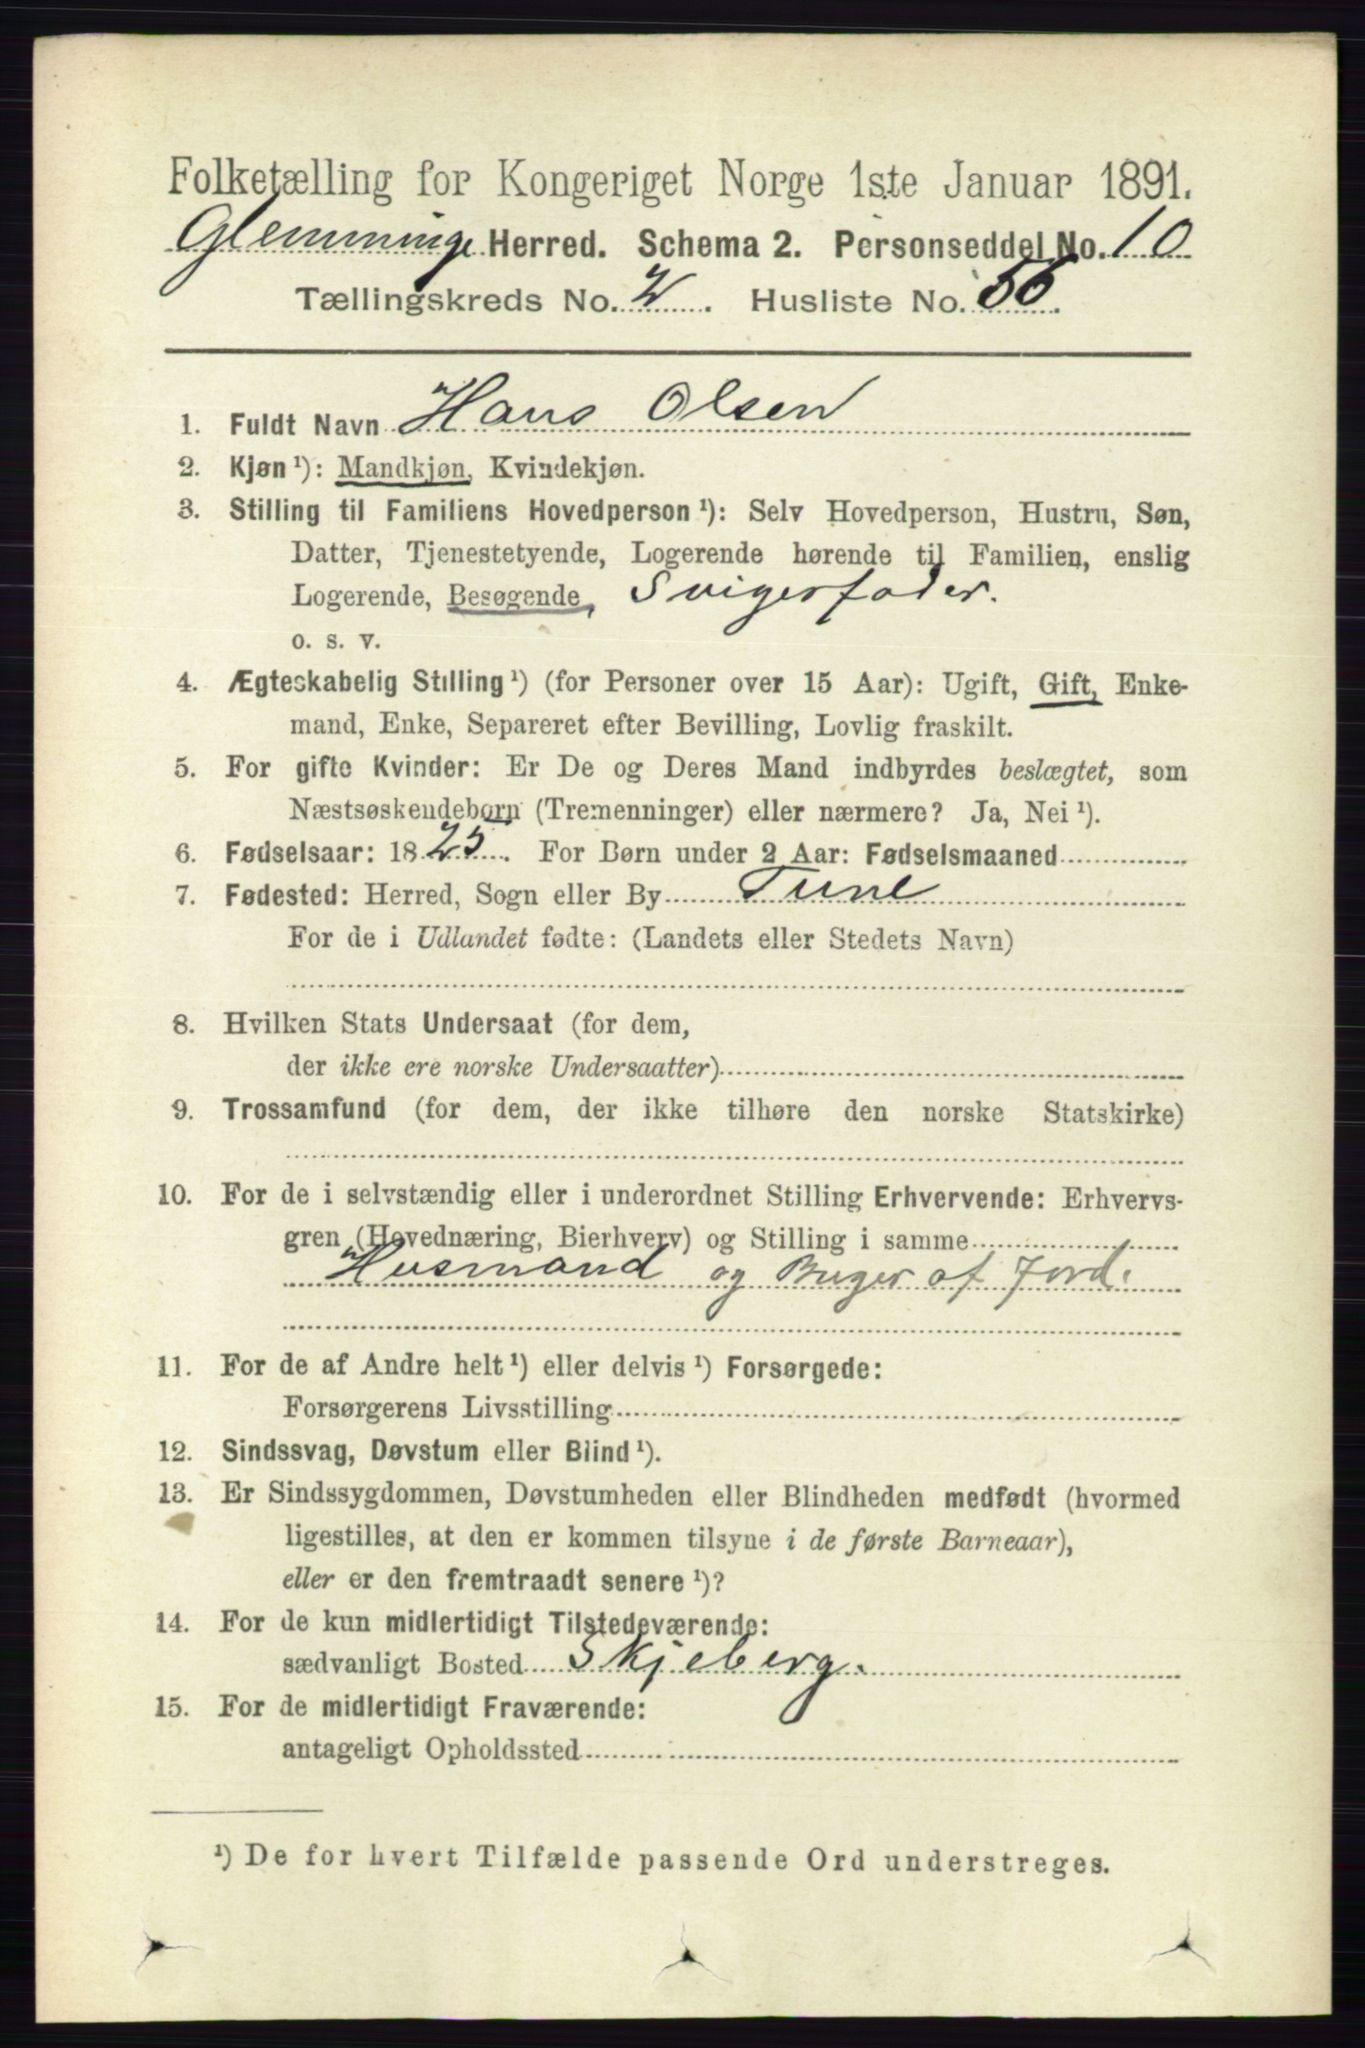 Folketælling for Kongeriget Norge 1ste Januar 1891.
Glemminge Herred. Schema 2. Personseddel No. 10
Tællingskreds No. 2. Husliste No. 56.
1. Fuldt Navn Hans Olsen
2. Kjøn ¹): Mandkjøn, Kvindekjøn.
3. Stilling til Familiens Hovedperson ¹): Selv Hovedperson, Hustru, Søn,
Datter, Tjenestetyende, Logerende hørende til Familien, enslig
Logerende, Besøgende, Svigerfader.
o. s. v.
4. Ægteskabelig Stilling ¹) (for Personer over 15 Aar): Ugift, Gift, Enke-
mand, Enke, Separeret efter Bevilling, Lovlig fraskilt.
5. For gifte Kvinder: Er De og Deres Mand indbyrdes beslægtet, som
Næstsøskendebørn (Tremenninger) eller nærmere? Ja, Nei ¹).
6. Fødselsaar: 1825. For Børn under 2 Aar: Fødselsmaaned
7. Fødested: Herred, Sogn eller By Tune
For de i Udlandet fødte: (Landets eller Stedets Navn)
8. Hvilken Stats Undersaat (for dem,
der ikke ere norske Undersaatter)
9. Trossamfund (for dem, der ikke tilhøre den norske Statskirke)
10. For de i selvstændig eller i underordnet Stilling Erhvervende: Erhvervs-
gren (Hovednæring, Bierhverv) og Stilling i samme
Husmand og Buger af Jord.
11. For de af Andre helt ¹) eller delvis ¹) Forsørgede:
Forsørgerens Livsstilling
12. Sindssvag, Døvstum eller Blind ¹).
13. Er Sindssygdommen, Døvstumheden eller Blindheden medfødt (hvormed
ligestilles, at den er kommen tilsyne i de første Barneaar),
eller er den fremtraadt senere ¹)?
14. For de kun midlertidigt Tilstedeværende:
sædvanligt Bosted Skjeberg.
15. For de midlertidigt Fraværende:
antageligt Opholdssted
¹) De for hvert Tilfælde passende Ord understreges.